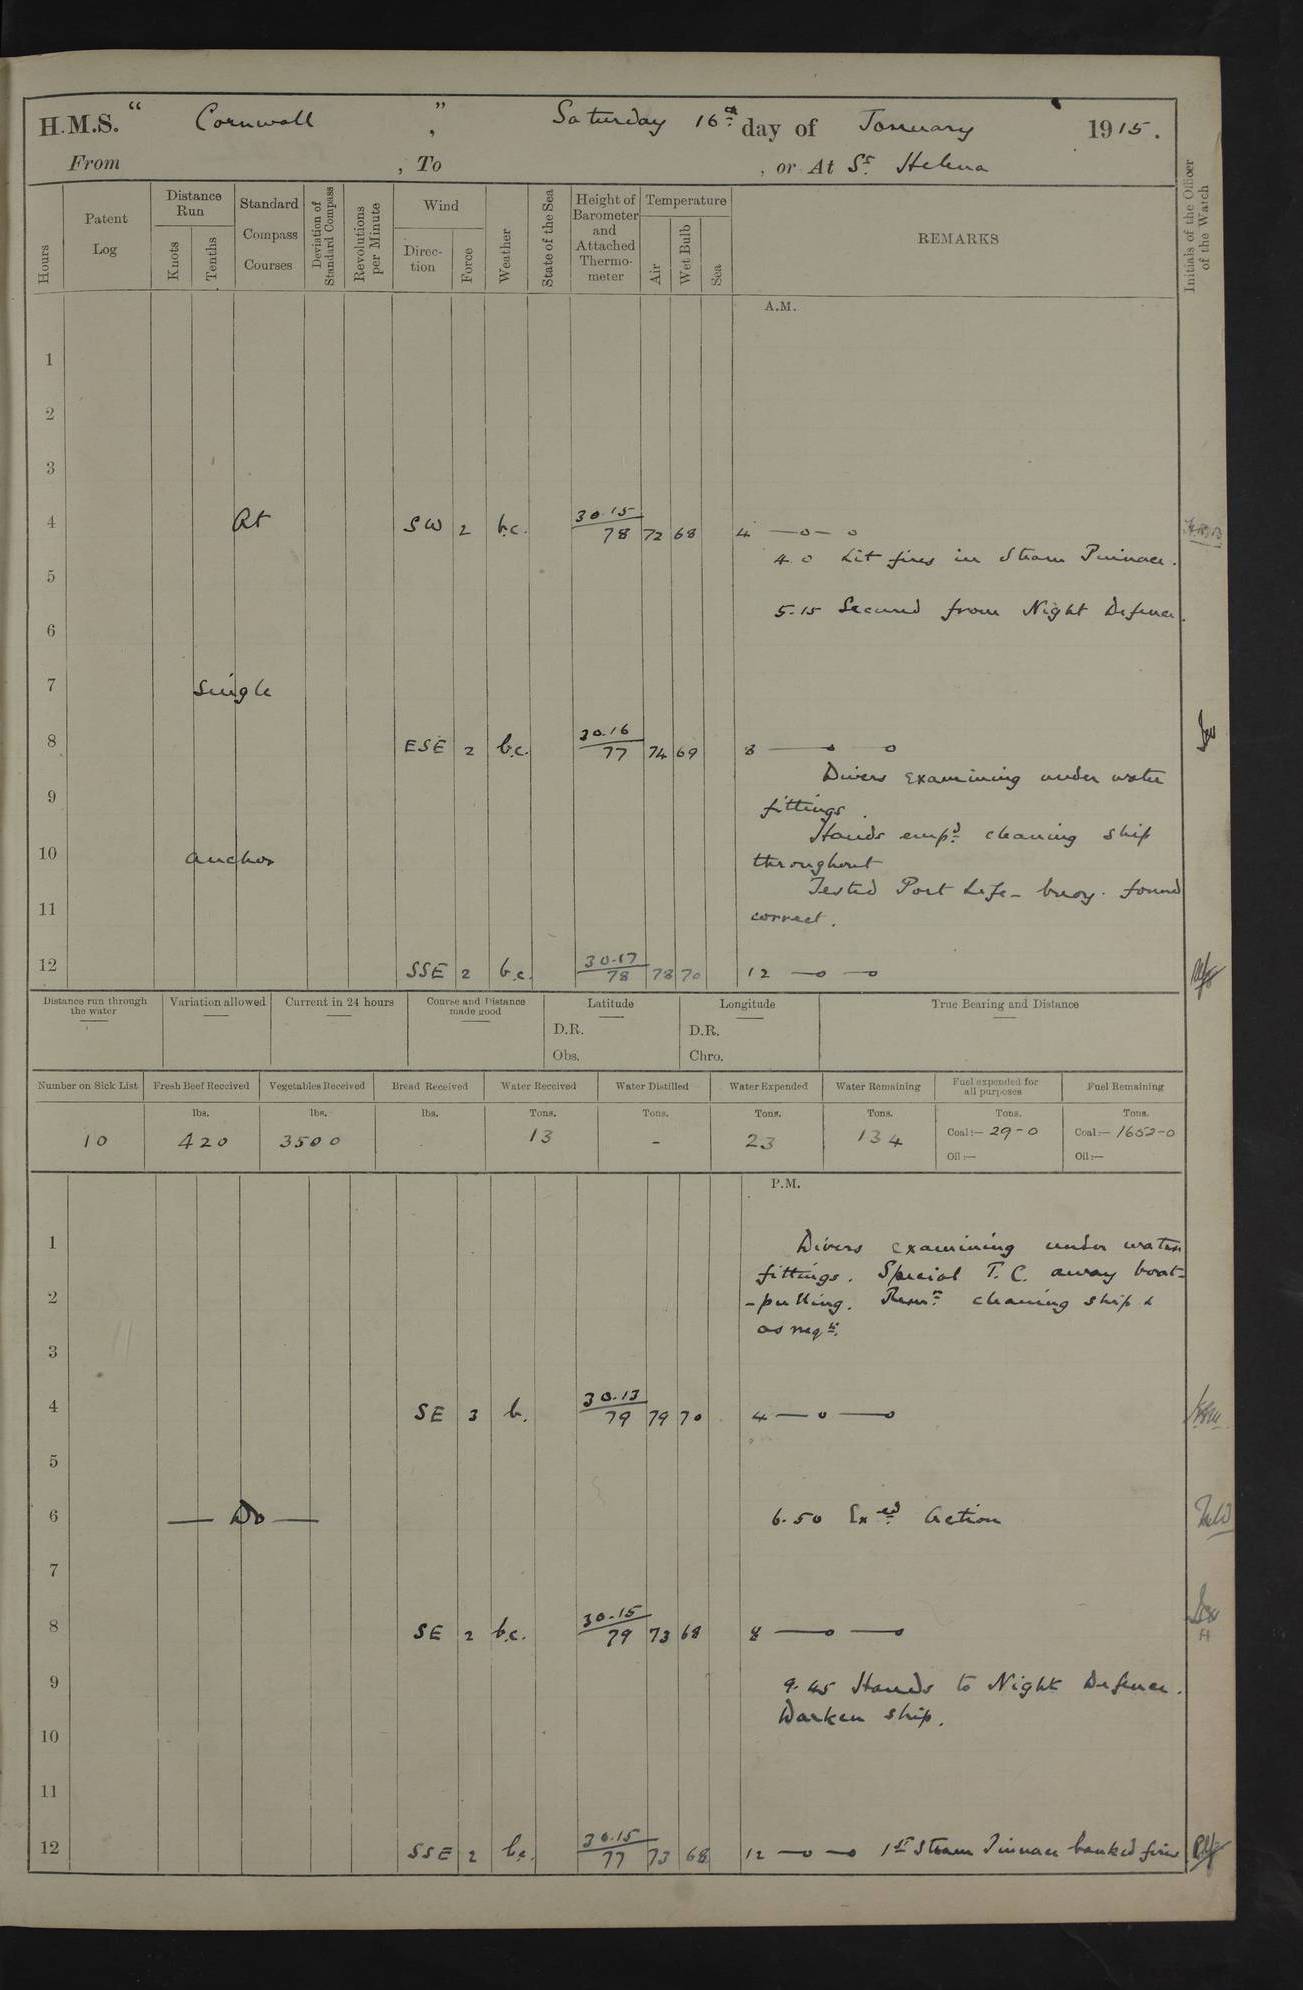 H.M.S. " Cornwall ", Saturday 16th day of January 1915.
From , To , or At St Helena
Hours
Patent Log
Distance Run
Knots
Tenths
Standard Compass Courses
Deviation of Standard Compass
Revolutions per Minute
Wind
Direction
Force
Weather
State of the Sea
Height of Barometer and Attached Thermometer
Temperature
Air
Wet Bulb
Sea
REMARKS
Initials of the Officer of the Watch
A.M.
1
2
3
4 At SW 2 b.c. 30.15 78 72 68 4 —o— o
4.0 Lit fires in Steam Pinnace.
5
5.15 Secured from Night Defence.
6
7 Single
8 ESE 2 b.c. 30.16 77 74 69 8 —o —o
Divers examining under water
9
fittings.
Hands empd cleaning ship
10 anchor
throughout
Tested Port Life-buoy. found
11
correct.
12 SSE 2 b.c. 30.17 78 78 70 12 —o —o
Distance run through the water
Variation allowed
Current in 24 hours
Course and Distance made good
Latitude
D.R.
Obs.
Longitude
D.R.
Chro.
True Bearing and Distance
Number on Sick List Fresh Beef Received Vegetables Received Bread Received Water Received Water Distilled Water Expended Water Remaining Fuel expended for all purposes Fuel Remaining
lbs. lbs. lbs. Tons. Tons. Tons. Tons. Tons. Tons.
10 420 3500 13 - 23 134 Coal:— 29-0 Coal:— 1652-0
Oil:— Oil:—
P.M.
1
Divers examining under water
fittings. Special T.C. away boat-
2
-pulling. Remr cleaning ship &
as reqd.
3
4 SE 3 b. 30.13 79 79 70 4 — o —o
5
6 — Do — 6.50 Exed Action
7
8 SE 2 b.c. 30.15 79 73 68 8 —o —o
9
9.45 Hands to Night Defence.
Darken ship.
10
11
12 SSE 2 b.c. 30.15 77 73 68 12 —o —o 1st Steam Pinnace banked fires